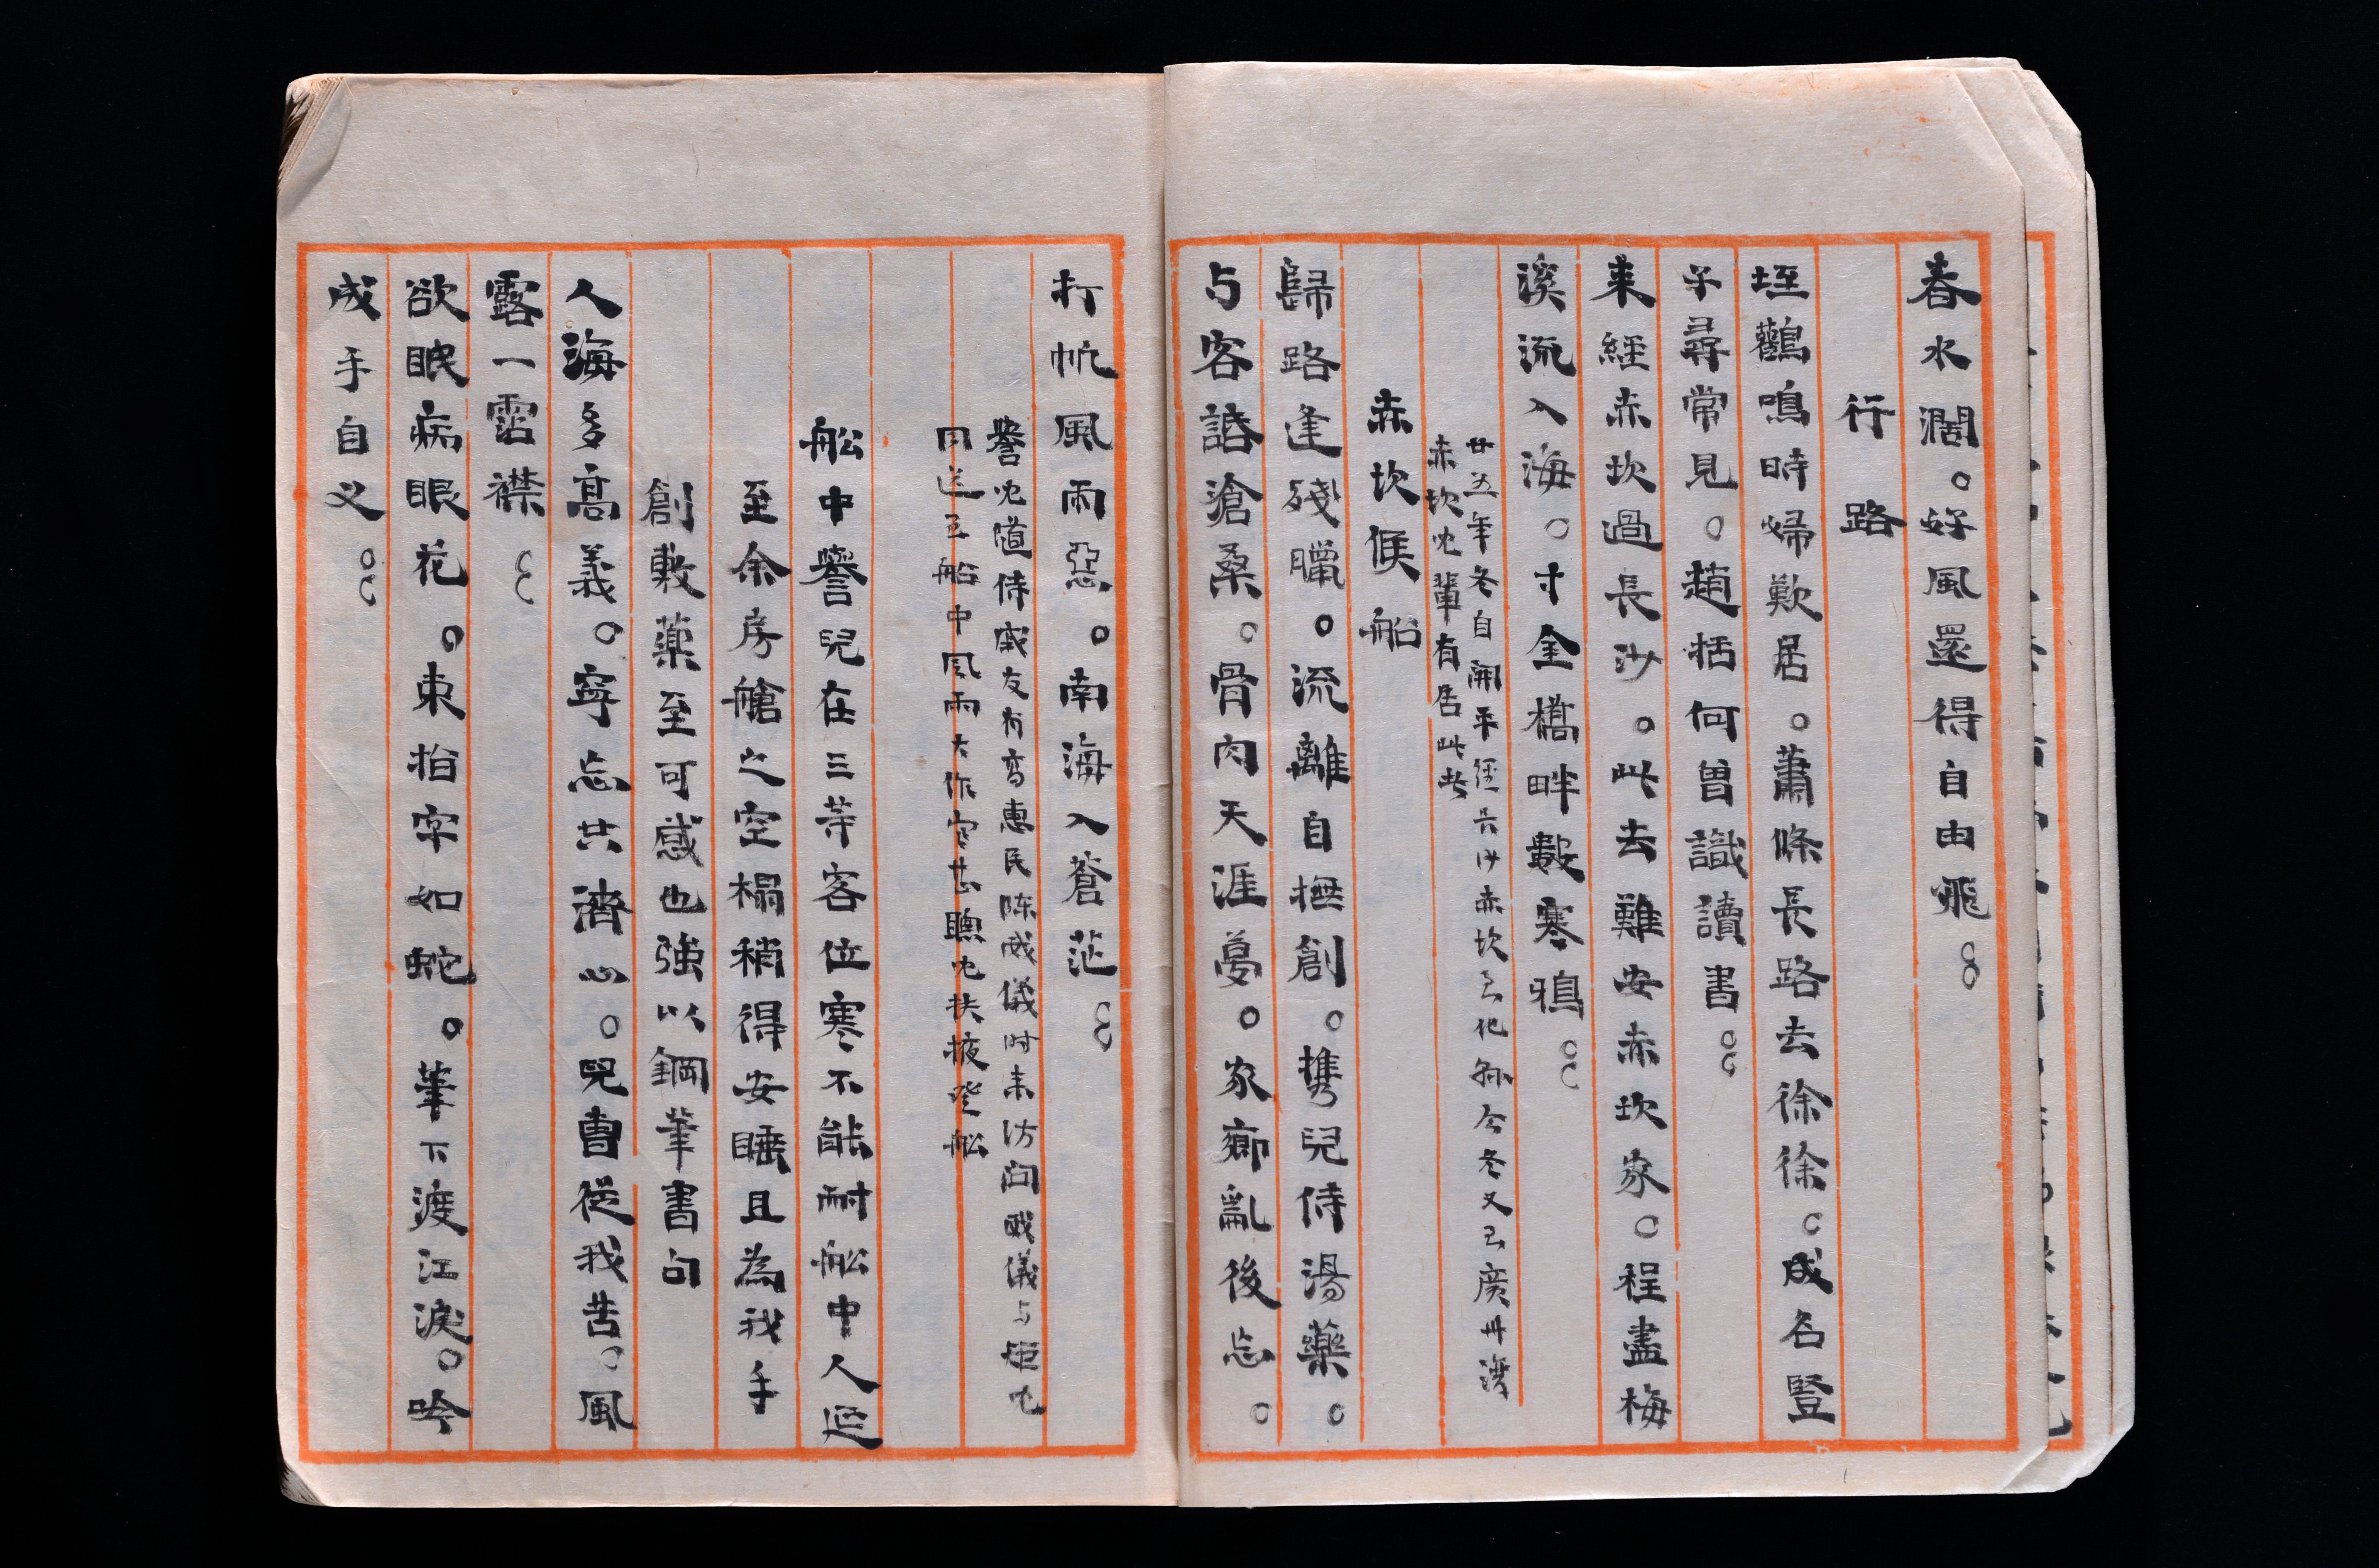 春水濶。好風還得自由飛。。
行路
垤鸛鳴時婦歎居。蕭條長路去徐徐。成名豎
子尋常見。趙括何曾識讀書。。
來經赤坎過長沙。此去難安赤坎家。程盡梅
溪流入海。寸金橋畔數寒鴉。。
廿五年冬自開平經長沙赤坎云化縣今冬又云廣州灣
赤坎也輩有居此者
赤坎候船
歸路逢殘臘。流離自撫創。攜兒侍湯藥。
与客話滄桑。骨肉天涯夢。家鄉亂後忘。
打帆風雨惡。南海入蒼茫。。
譽兒隨侍戚友有高惠民陈威儀时来访问威儀与
同送至船中風雨大作寒甚聰兒扶掖登船
船中譽兒在三等客位寒不能耐船中人延
至余房艙之空榻稍得安睡且為我手
創敷藥至可感也強以鋼筆書句
人海多高義。寧忘共濟心。兒曹從我苦。風
露一霑襟。。
欲眠病眼花。束指字如蛇。筆下渡江淚。吟
成手自叉。。